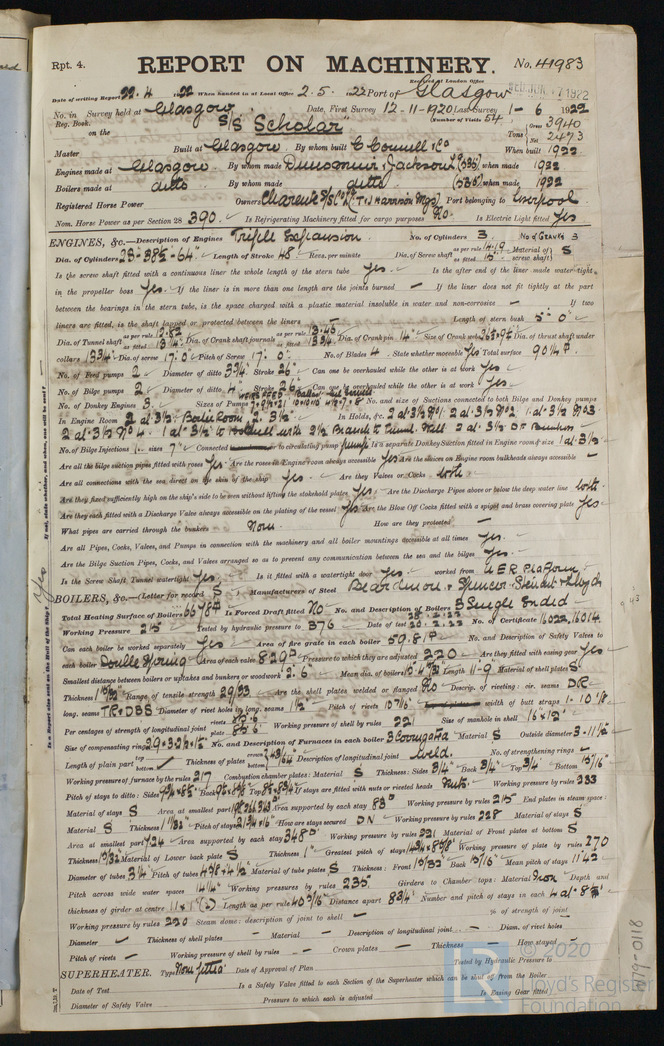 Rpt. 4. REPORT ON MACHINERY. No. 41983
Received at London Office WED. JUN. 7 1922
Date of writing Report 22. 4 1922 When handed in at Local Office 2. 5. 1922 Port of Glasgow
No. in Survey held at Glasgow. Date, First Survey 12-11-1920 Last Survey 1- 6 1922
Reg. Book. (Number of Visits 54)
on the S/S "Scholar" Tons Gross 3940 Net 2473
Master Built at Glasgow. By whom built C Connell & Co When built 1922
Engines made at Glasgow. By whom made Dunsmuir & Jackson Ld (535) when made 1922
Boilers made at ditto By whom made ditto (535) when made 1922
Registered Horse Power Owners Charente S/S Co Ld (T & J Harrison Mgrs) Port belonging to Liverpool
Nom. Horse Power as per Section 28 390. Is Refrigerating Machinery fitted for cargo purposes No. Is Electric Light fitted Yes
ENGINES, &c.—Description of Engines Triple Expansion. No. of Cylinders 3 No of Cranks 3
Dia. of Cylinders 23"-38½-64" Length of Stroke 48 Revs. per minute Dia. of Screw shaft as per rule 14.19 as fitted 15" Material of screw shaft S
Is the screw shaft fitted with a continuous liner the whole length of the stern tube Yes. Is the after end of the liner made water tight
in the propeller boss Yes. If the liner is in more than one length are the joints burned — If the liner does not fit tightly at the part
between the bearings in the stern tube, is the space charged with a plastic material insoluble in water and non-corrosive — If two
liners are fitted, is the shaft lapped or protected between the liners Length of stern bush 5'-0"
Dia. of Tunnel shaft as per rule 12.82 as fitted 13¼ Dia. of Crank shaft journals as per rule 13.46 as fitted 13¾ Dia. of Crank pin 14" Size of Crank webs Dia. of thrust shaft under
collars 13¾ Dia. of screw 17'-0" Pitch of Screw 17'-0" No. of Blades 4 State whether moveable Yes Total surface 90 ft
No. of Feed pumps 2 Diameter of ditto 3¾ Stroke 26" Can one be overhauled while the other is at work Yes
No. of Bilge pumps 2 Diameter of ditto 4 Stroke 26 Can one be overhauled while the other is at work Yes
No. of Donkey Engines 3 Sizes of Pumps No. and size of Suctions connected to both Bilge and Donkey pumps
In Engine Room 2 at 3½. Boiler Room 2. 3½" In Holds, &c. 2 at 3½ No 1. 2 at 3½ No 2 1 at 3½ No 3
2 at 3½ No 4.
No. of Bilge Injections 1 sizes 7" Connected to circulating pump pump Is a separate Donkey Suction fitted in Engine room & size 1 at 3½
Are all the bilge suction pipes fitted with roses Yes Are the roses in Engine room always accessible Yes Are the sluices on Engine room bulkheads always accessible —
Are all connections with the sea direct on the skin of the ship Yes. Are they Valves or Cocks both
Are they fixed sufficiently high on the ship's side to be seen without lifting the stokehold plates Yes Are the Discharge Pipes above or below the deep water line both.
Are they each fitted with a Discharge Valve always accessible on the plating of the vessel Yes Are the Blow Off Cocks fitted with a spigot and brass covering plate Yes
What pipes are carried through the bunkers None. How are they protected —
Are all Pipes, Cocks, Valves, and Pumps in connection with the machinery and all boiler mountings accessible at all times Yes.
Are the Bilge Suction Pipes, Cocks, and Valves arranged so as to prevent any communication between the sea and the bilges Yes.
Is the Screw Shaft Tunnel watertight Yes. Is it fitted with a watertight door Yes worked from U.E.R Platform
BOILERS, &c.—(Letter for record S) Manufacturers of Steel Beardmore
Total Heating Surface of Boilers 6678 Is Forced Draft fitted No No. and Description of Boilers 3 Single Ended
Working Pressure 215 Tested by hydraulic pressure to 376 Date of test 28.2.22 No. of Certificate 16022, 16014
Can each boiler be worked separately Yes Area of fire grate in each boiler 59.8 No. and Description of Safety Valves to
each boiler Double Spring Area of each valve 8.29 Pressure to which they are adjusted 220 Are they fitted with easing gear Yes
Smallest distance between boilers or uptakes and bunkers or woodwork 2'-6" Mean dia. of boilers Length 11'-9" Material of shell plates S
Thickness Range of tensile strength 29/33 Are the shell plates welded or flanged No Descrip. of riveting: cir. seams DR
long. seams TR & DBS Diameter of rivet holes in long. seams 1½ Pitch of rivets 10 7/16" width of butt straps 1-10⅛
Per centages of strength of longitudinal joint rivets plate Working pressure of shell by rules 221 Size of manhole in shell 16 x 12
Size of compensating ring No. and Description of Furnaces in each boiler 3 Corrugated Material S Outside diameter 3-11½"
Length of plain part top bottom Thickness of plates crown bottom Description of longitudinal joint weld. No. of strengthening rings —
Working pressure of furnace by the rules 217 Combustion chamber plates: Material S Thickness: Sides ¾" Back ¾" Top ¾" Bottom 15/16"
Pitch of stays to ditto: Sides Back Top If stays are fitted with nuts or riveted heads Nuts. Working pressure by rules 233
Material of stays S Area at smallest part Area supported by each stay 83 Working pressure by rules 215 End plates in steam space:
Material S Thickness 1 11/32 Pitch of stays How are stays secured DN Working pressure by rules 228 Material of stays S
Area at smallest part 7.24 Area supported by each stay 348 Working pressure by rules 221 Material of Front plates at bottom S
Thickness Material of Lower back plate S Thickness 1" Greatest pitch of stays Working pressure of plate by rules 270
Diameter of tubes 3¼ Pitch of tubes Material of tube plates S Thickness: Front Back 15/16" Mean pitch of stays
Pitch across wide water spaces 14¼" Working pressures by rules 235 Girders to Chamber tops: Material Iron Depth and
thickness of girder at centre Length as per rule Distance apart 8¾ Number and pitch of stays in each
Working pressure by rules 220 Steam dome: description of joint to shell — % of strength of joint
Diameter Thickness of shell plates — Material — Description of longitudinal joint — Diam. of rivet holes
Pitch of rivets — Working pressure of shell by rules — Crown plates — Thickness — How stayed —
SUPERHEATER. Type None fitted Date of Approval of Plan Tested by Hydraulic Pressure to
Date of Test Is a Safety Valve fitted to each Section of the Superheater which can be shut off from the Boiler
Diameter of Safety Valve Pressure to which each is adjusted Is Easing Gear fitted
© 2020
Lloyd's Register
Foundation